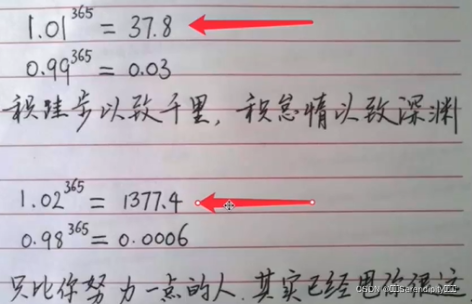 1.01^365 = 37.8
0.99^365 = 0.03
积跬步以致千里，积怠惰以致深渊
1.02^365 = 1377.4
0.98^365 = 0.0006
只比你努力一点的人，其实已经甩你很远